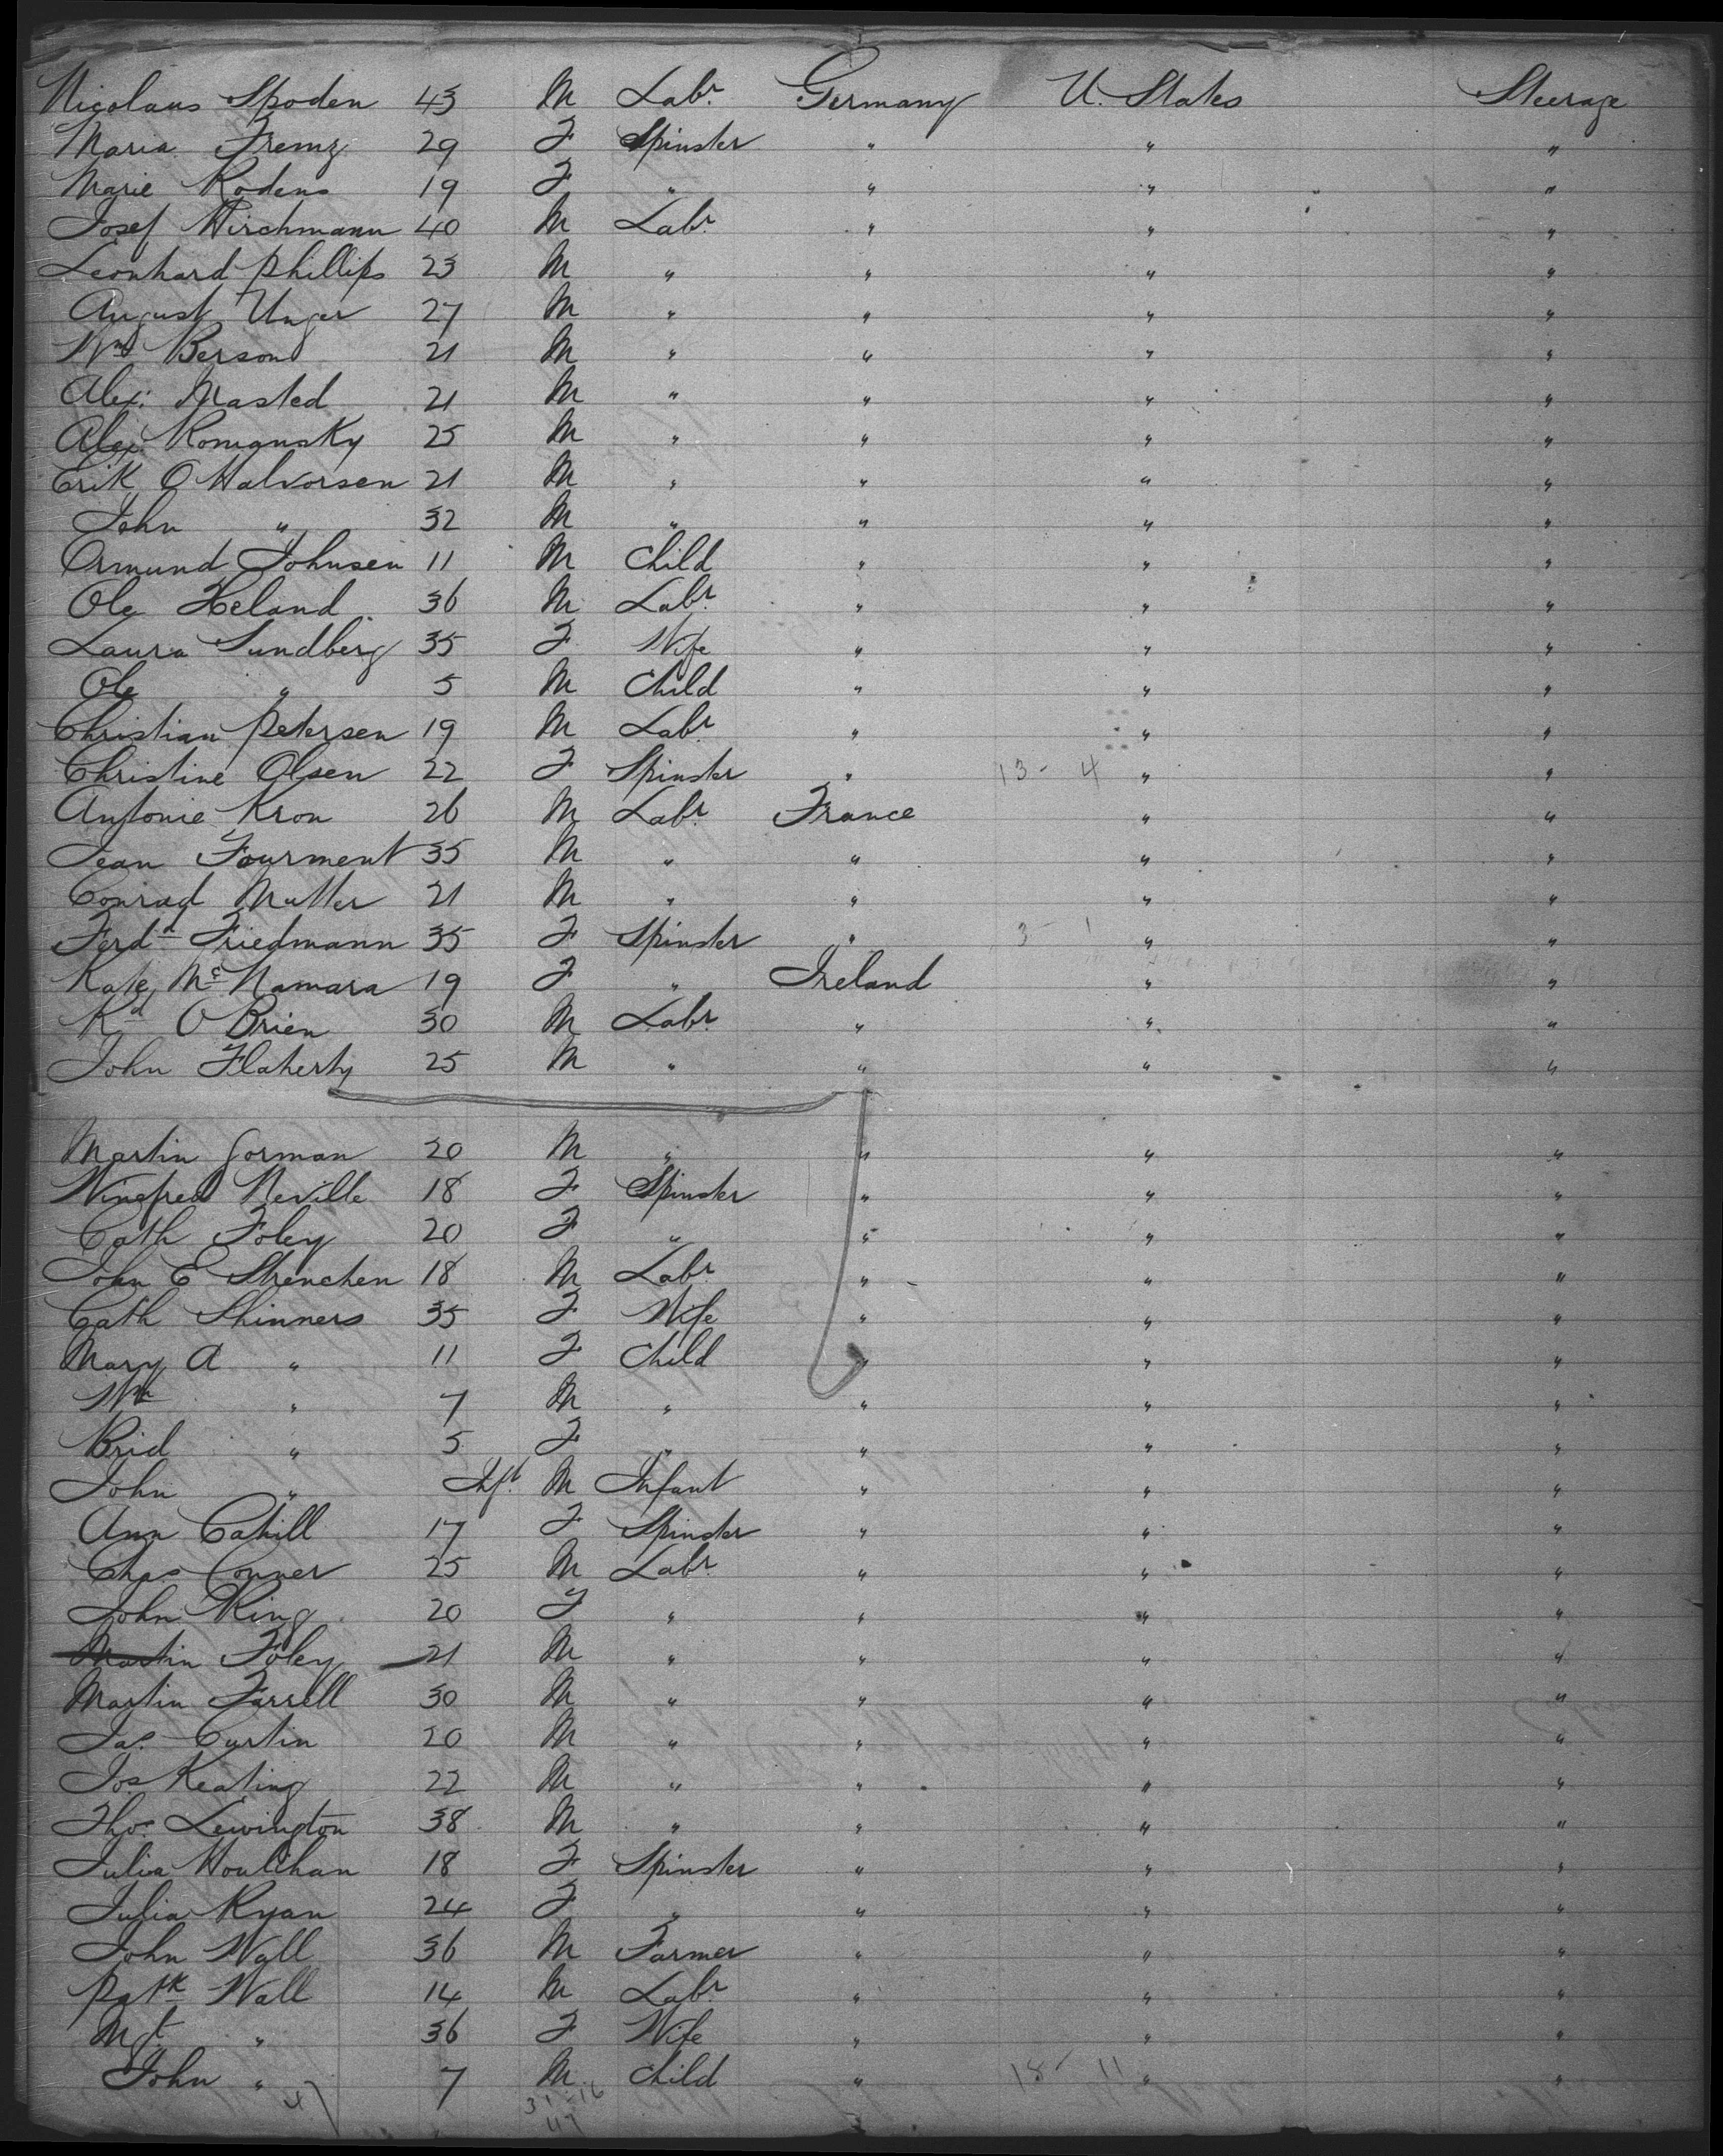 Nicolaus Spoden 43 M Labr. Germany U. States Steerage
Maria Fremz 29 F Spinster " " "
Marie Rodens 19 F " " " "
Josef Hirchmann 40 M Labr. " " "
Leonhard Phillips 23 M " " " "
August Unger 27 M " " " "
Wm Berson 21 M " " " "
Alex: Masted 21 M " " " "
Alex. Romansky 25 M " " " "
Erik O Halvorsen 21 M " " " "
John " 32 M " " " "
Ormund Johnsen 11 M Child " " "
Ole Heland 36 M Labr. " " "
Laura Sundberg 35 F Wife " " "
Ole " 5 M Child " " "
Christian Petersen 19 M Labr. " " "
Christine Olsen 22 F Spinster " 13 - 4 " "
Antonie Kron 26 M Labr. France " "
Jean Fourment 35 M " " " "
Conrad Mutter 21 M " " " "
Ferdd Friedmann 35 F Spinster " 3 - 1 " "
Kate Mc Namara 19 F " Ireland " "
Rd O Brien 30 M Labr. " " "
John Flaherty 25 M " " " "
Martin Gorman 20 M " " " "
Winefred Neville 18 F Spinster " " "
Cath Foley 20 F " " " "
John E Shenchen 18 M Labr. " " "
Cath Shinners 35 F Wife " " "
Mary A " 11 F Child " " "
Wm " 7 M " " " "
Brid " 5 F " " " "
John " Inft. M Infant " " "
Ann Cahill 17 F Spinster " " "
Chas Conner 25 M Labr. " " "
John King 20 F " " " "
Martin Foley 21 M " " " "
Martin Farrell 30 M " " " "
Jas. Curtin 20 M " " " "
Jos Keating 22 M " " " "
Thos. Lewington 38 M " " " "
Julia Houlihan 18 F Spinster " " "
Julia Ryan 24 F " " " "
John Wall 36 M Farmer " " "
Patk Wall 14 M Labr. " " "
Mgt " 36 F Wife " " "
John " 7 M Child " 18 - 11 " "
47 31 - 16
47